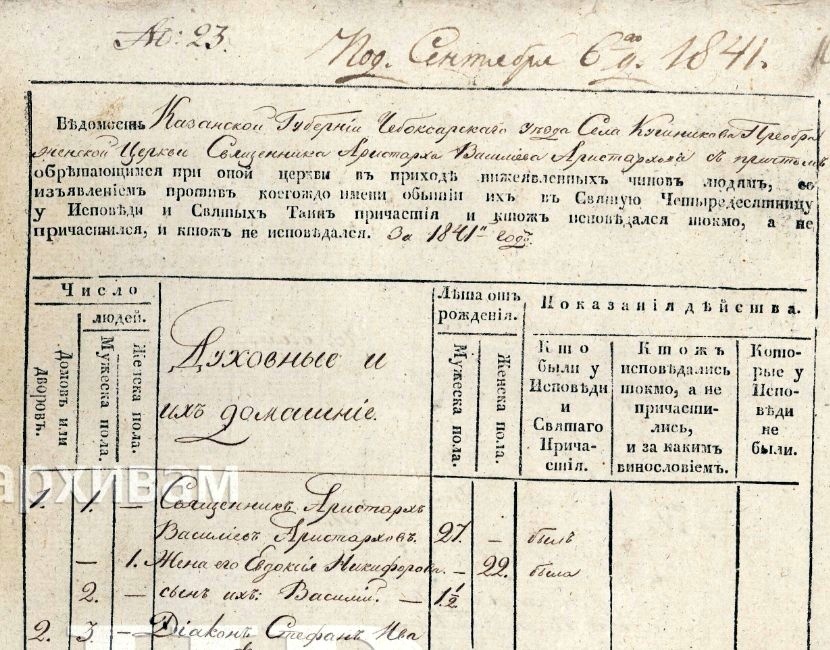 No: 23.
Под. Сентября 6го д. 1841.
Вѣдомость Казанской Губерніи Чебоксарскаго уѣзда Села Кушникова Преобра
женской Церкви Священника Аристарха Васильева Аристархова съ причтомъ
обрѣтающимся при оной церкви въ приходѣ нижеявленныхъ чиновъ людямъ, со
изъявленіемъ противъ коегождо имени бытіи ихъ въ Святую Четыредесятницу
у Исповѣди и Святыхъ Таинъ причастія и ктожъ исповѣдался токмо, а не
причастился, и ктожъ не исповѣдался. За 1841й годъ.
Число
людей.
Домовъ или дворовъ.
Мужеска пола.
Женска пола.
Духовные и
ихъ домашніе.
Лѣта отъ
рожденія.
Мужеска пола.
Женска пола.
Показанія дѣйства.
Кто
были у
Исповѣди
и
Святаго
Прича-
стія.
Ктожъ
исповѣдались
токмо, а не
причасти-
лись,
и за какимъ
винословіемъ.
Кото-
рые у
Испо-
вѣди
не
были.
1. 1. — Священникъ Аристархъ
Васильевъ Аристарховъ. 27. — былъ
— 1. Жена его Евдокія Никифорова. — 22. была
2. — сынъ ихъ: Василій. — 1 1/2
2. 3. — Діаконъ Стефанъ Ива
архивам